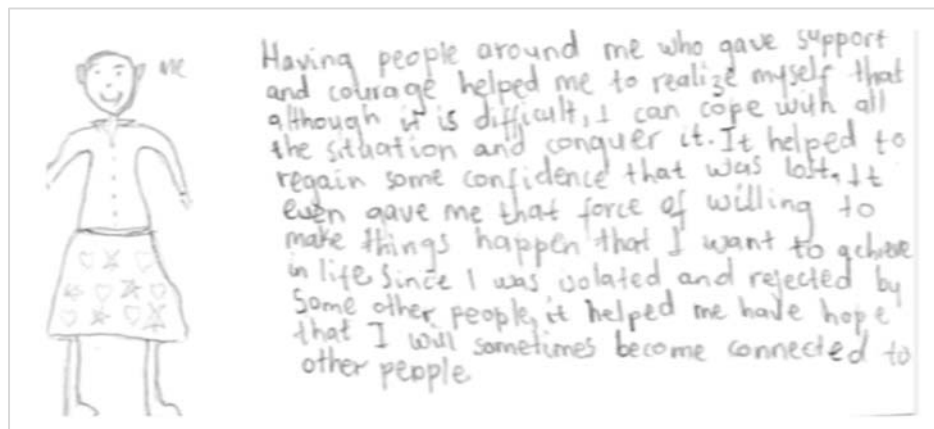 ME
Having people around me who gave support
and courage helped me to realize myself that
although it is difficult, I can cope with all
the situation and conquer it. It helped to
regain some confidence that was lost. It
even gave me that force of willing to
make things happen that I want to achieve
in life. Since I was isolated and rejected by
some other people, it helped me have hope
that I will sometimes become connected to
other people